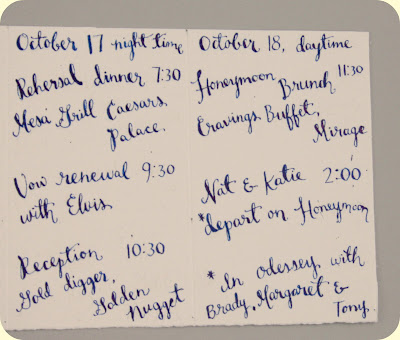 October 17 night time
Rehersal dinner 7:30
Mesa Grill Caesars
Palace.
Vow renewal 9:30
with Elvis
Reception 10:30
Gold digger,
Golden
Nugget
October 18, daytime
Honeymoon 11:30
Brunch
Cravings Buffet,
Mirage
Nat & Katie 2:00
*depart on Honeymoon
* In odessey with
Brady, Margaret &
Tony.